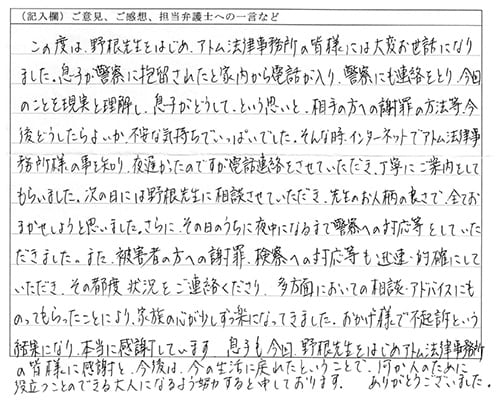 （記入欄）ご意見、ご感想、担当弁護士への一言など
この度は、野根先生をはじめ、アトム法律事務所の皆様には大変お世話になり
ました。息子が警察に拘留されたと家内から電話が入り、警察にも連絡をとり、今回
のことを現実と理解し、息子がどうして、という思いと、相手の方への謝罪の方法等、今
後どうしたらよいか、不安な気持ちでいっぱいでした。そんな時、インターネットでアトム法律事
務所様の事を知り、夜遅かったのですが電話連絡をさせていただき、丁寧にご案内をして
もらいました。次の日には野根先生に相談させていただき、先生のお人柄の良さで、全てお
まかせしようと思いました。さらに、その日のうちに夜中になるまで警察への対応等をしていた
だきました。また、被害者の方への謝罪、検察への対応等も迅速・的確にして
いただき、その都度、状況をご連絡くださり、多方面においての相談・アドバイスにも
のってもらったことにより、家族の心が少しずつ楽になってきました。おかげ様で不起訴という
結果になり、本当に感謝しています。息子も今回、野根先生をはじめアトム法律事務所
の皆様に感謝と、今後は、今の生活に戻れたということで、何か人のために
役立つことのできる大人になるよう努力すると申しております。ありがとうございました。